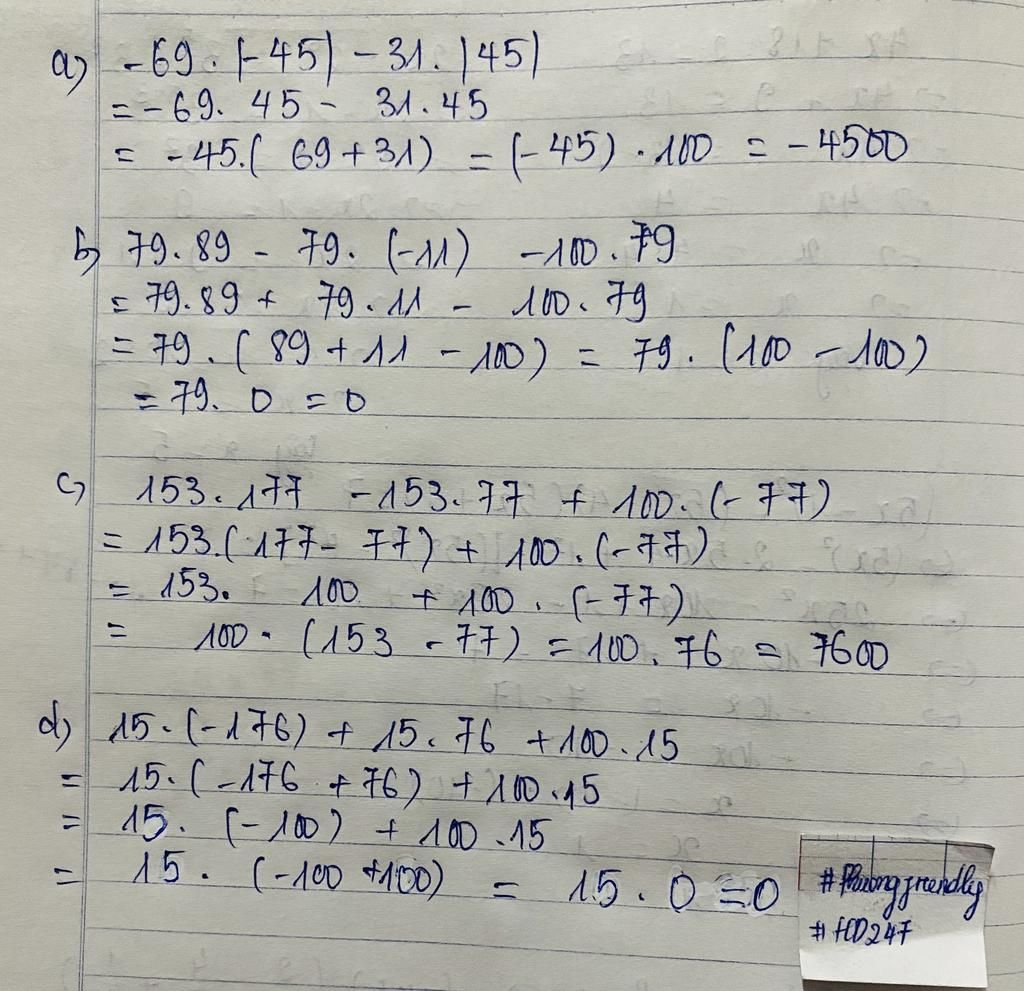 a) -69 . |-45| - 31 . |45|
= -69 . 45 - 31 . 45
= -45.( 69 + 31) = (-45) . 100 = -4500
b) 79.89 - 79. (-11) - 100 . 79
= 79.89 + 79.11 - 100. 79
= 79 . ( 89 + 11 - 100) = 79 . (100 - 100)
= 79. 0 = 0
c) 153.177 - 153.77 + 100. (-77)
= 153.(177 - 77) + 100 . (-77)
= 153. 100 + 100 . (-77)
= 100 . (153 - 77) = 100. 76 = 7600
d) 15.(-176) + 15. 76 + 100 . 15
= 15.(-176 + 76) + 100.15
= 15. (-100) + 100 .15
= 15 . (-100 +100) = 15 . 0 = 0
#Phuongfriendly
#HD247